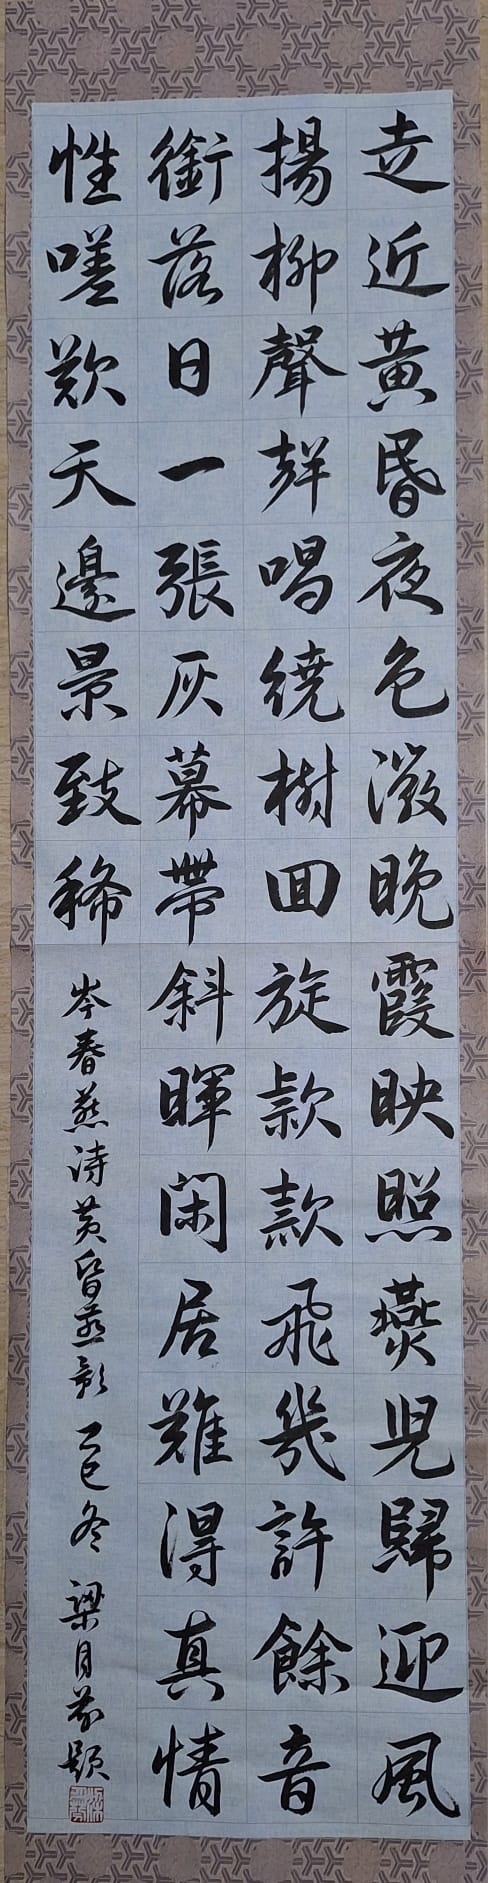 走近黃昏夜色溦晚霞映照燕兒歸迎風
揚柳聲聲唱繞樹回旋款款飛幾許餘音
銜落日一張灰幕帶斜暉閑居難得真情
性嗟歎天邊景致稀
岑春燕詩黃昏燕影 乙巳冬 梁月芬題